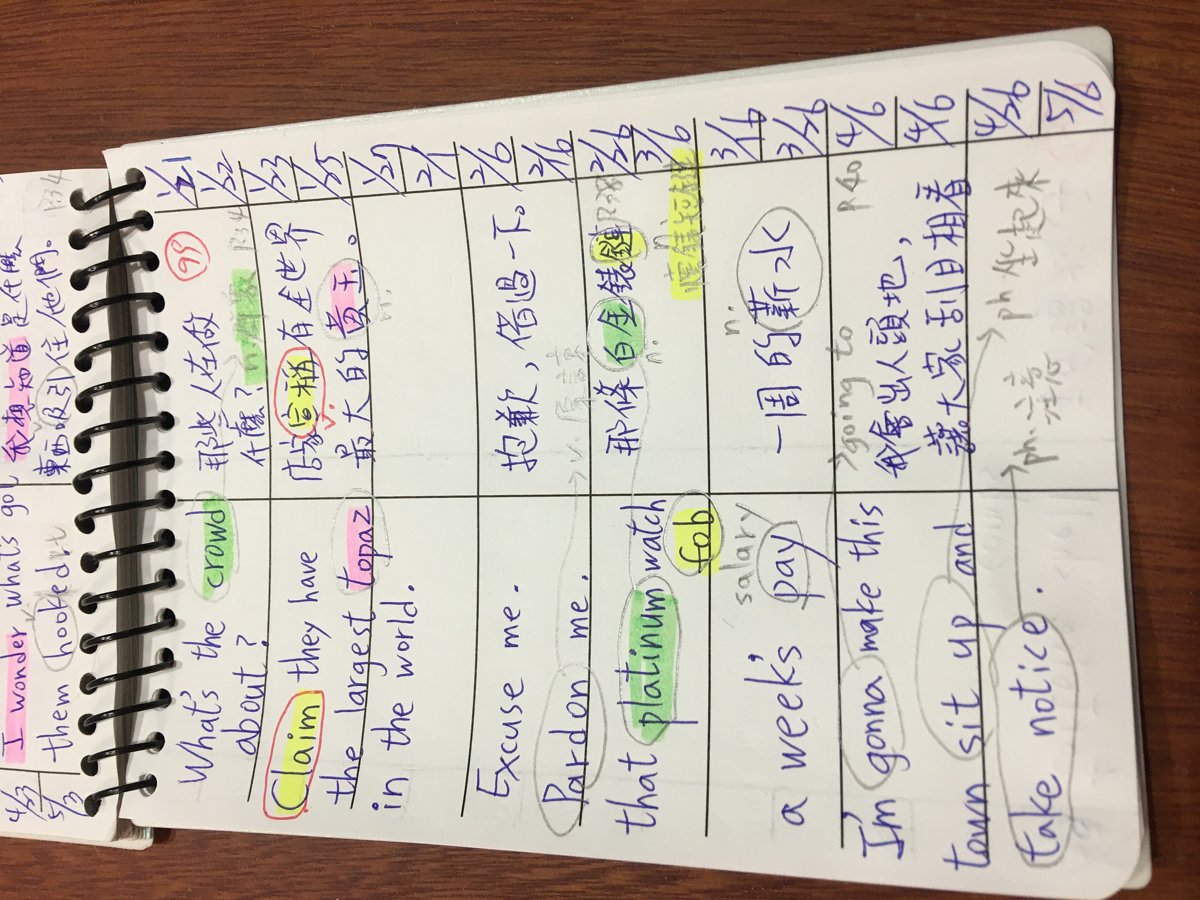 4/23
5/3
I wonder what's got
them hooked
我想知道是什麼
東西吸引住他們。
P34
What's the crowd
about?
那些人在做
什麼?
n.群眾
P34
99
1/21
1/22
Claim they have
the largest topaz
in the world.
店家宣稱有全世界
v.
最大的黃玉。
n.
1/23
1/25
1/27
2/1
Excuse me.
Pardon me.
抱歉,借過一下。
v.原諒
2/6
2/16
that platinum watch
fob
那條白金錶鏈
n.
P38
n.
懷錶短鏈
2/26
3/6
salary
a week's pay
n.
一周的薪水
3/16
3/26
I'm gonna make this
town sit up and
take notice.
going to
P40
我會出人頭地,
讓大家刮目相看
ph.坐起來
ph.注意
4/6
4/16
4/26
5/6